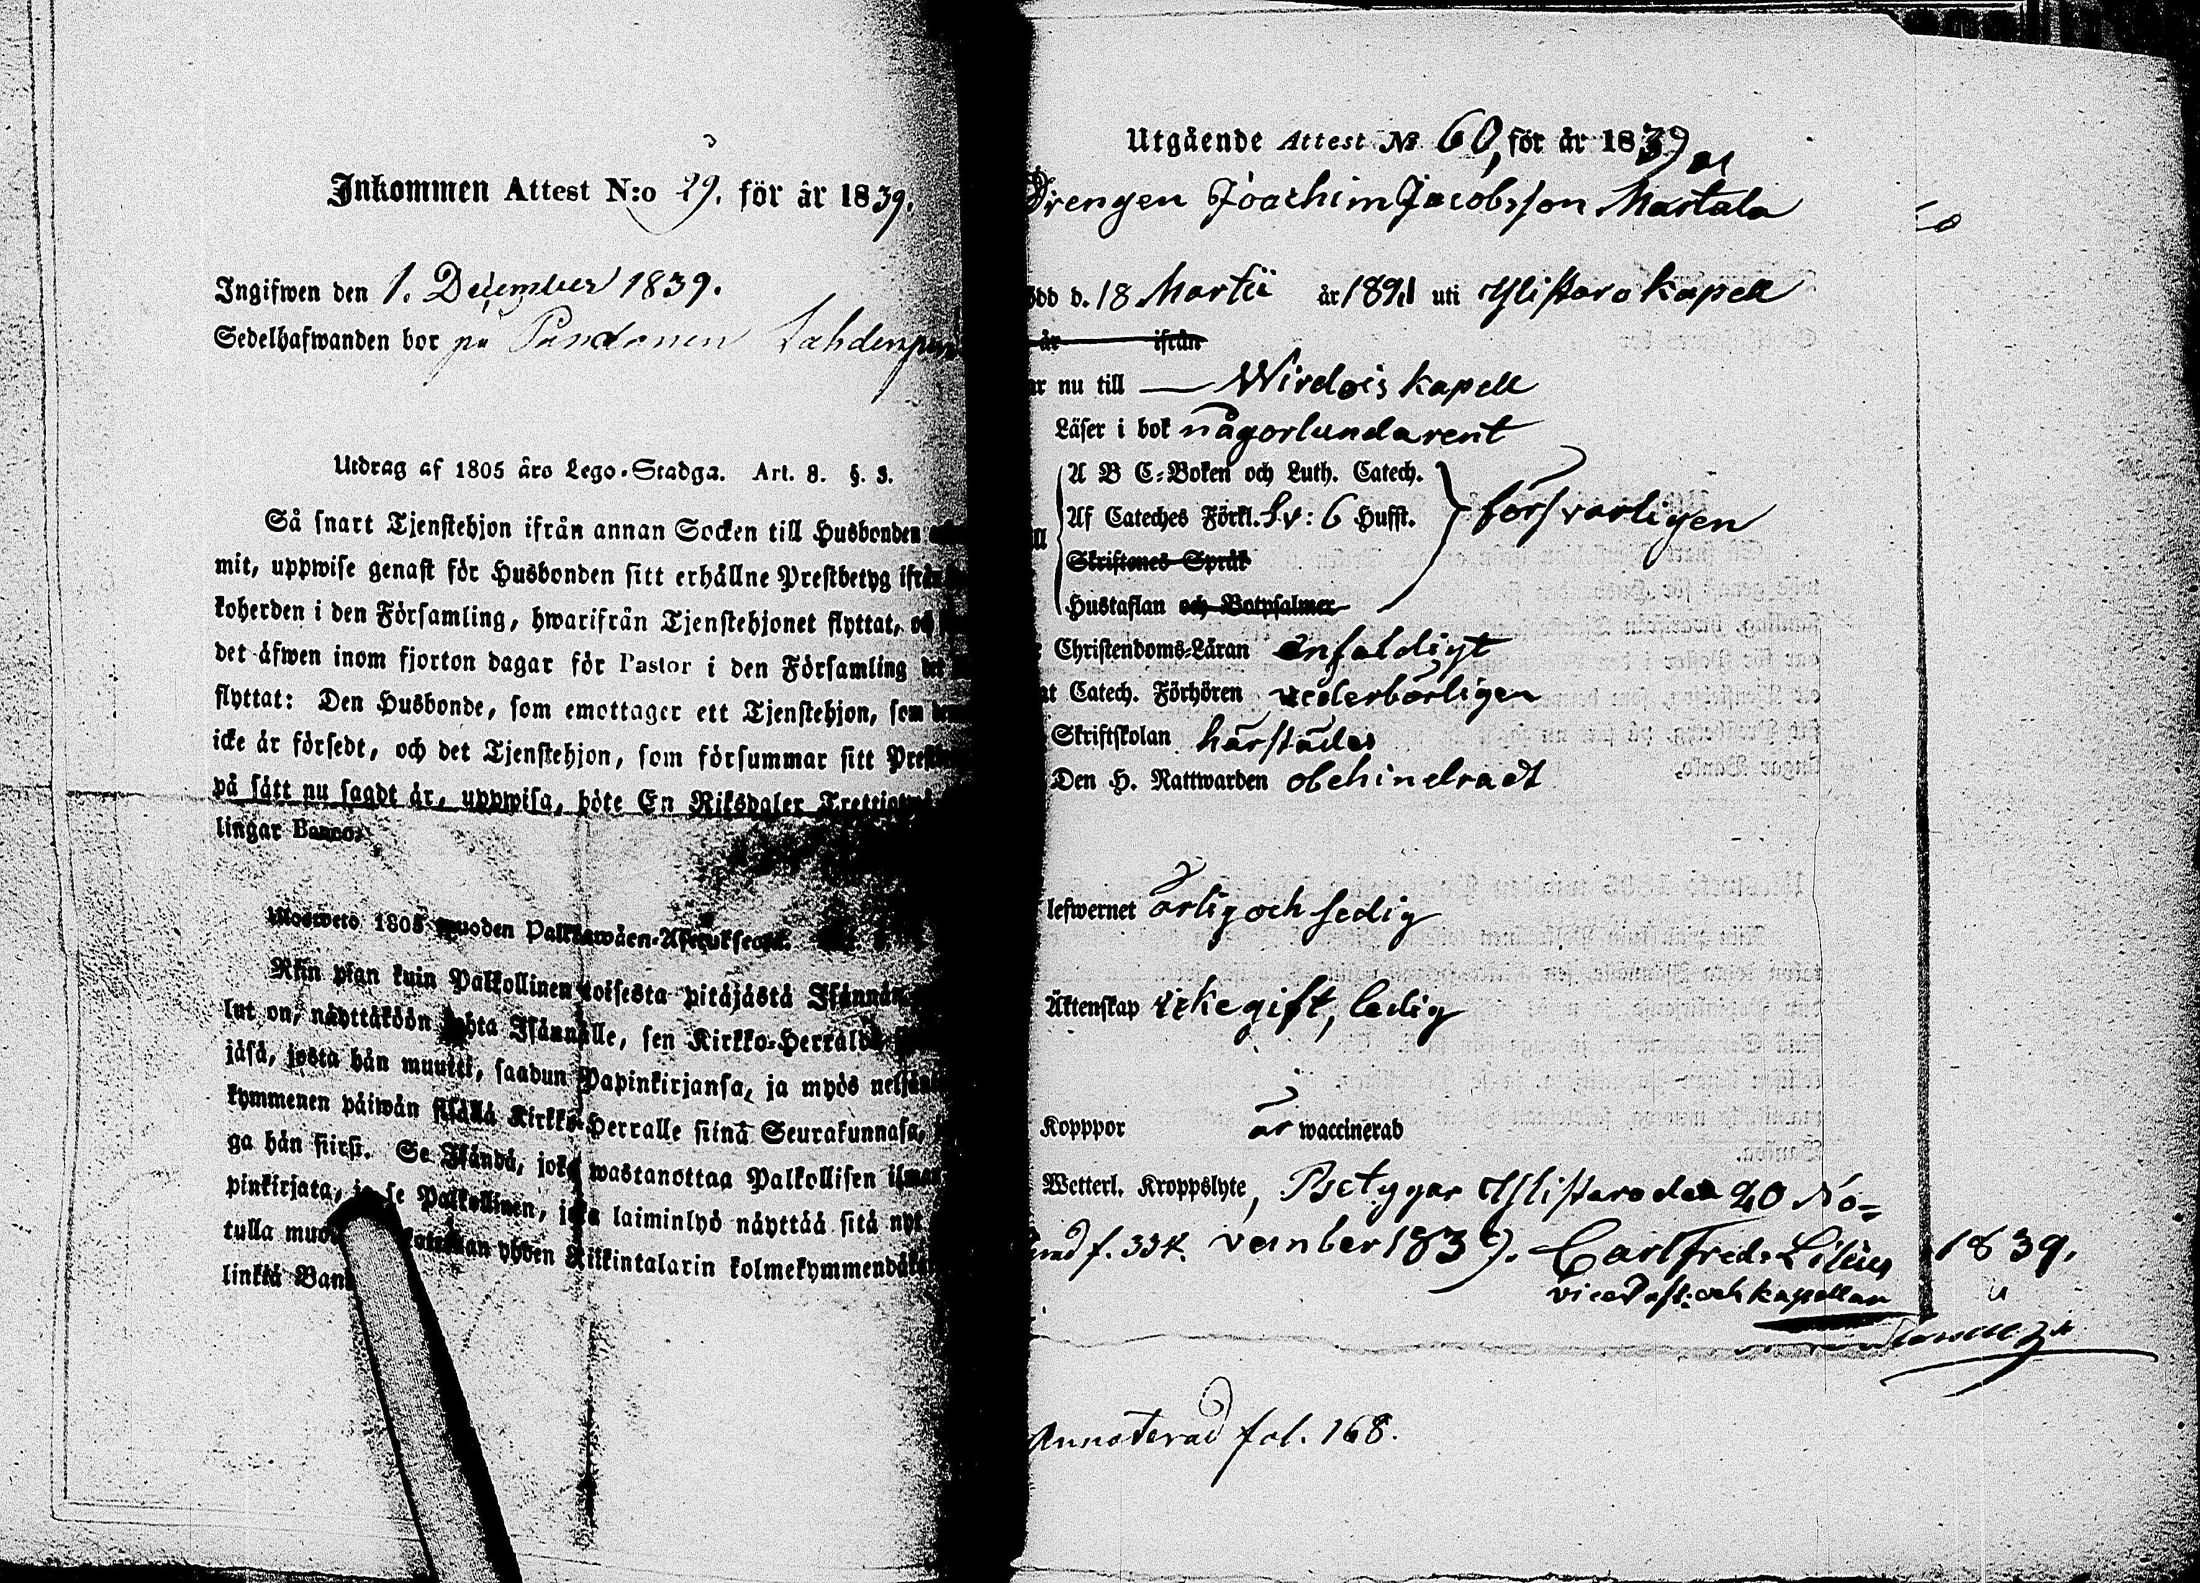 Inkommen Attest N:o 29. för år 1839.
Ingifwen den 1. December 1839.
Sedelhafwanden bor på
Utdrag af 1805 års Lego-Stadga. Art. 8. §. 3.
Så snart Tjenstehjon ifrån annan Socken till Husbonden
mit, uppwise genast för Husbonden sitt erhållne Prestbetyg ifrån
koherden i den Församling, hwarifrån Tjenstehjonet flyttat,
det äfwen inom fjorton dagar för Pastor i den Församling det
flyttat: Den Husbonde, som emottager ett Tjenstehjon, som
icke är försedt, och det Tjenstehjon, som försummar sitt
på sätt nu sagdt är, uppwisa, böte En Riksdaler
lingar Banco.
Ulosweto 1805 wuoden Palkkawäen-Asetuksesta.
Niin pian kuin Palkollinen toisesta pitäjästä Isännän
lut on, näyttäköön kohta Isännälle, sen Kirkko-Herralda
jäsä, josta hän muutti, saadun Papinkirjansa, ja myös
kymmenen päiwän sisällä Kirkko-Herralle siinä Seurakunnasa,
ga hän siirsi. Se Isändä, joka wastanottaa Palkollisen ilman
pinkirjata, ja se Palkollinen, joka laiminlyö näyttää sitä nyt
tulla yhden Riikintalarin kolmekymmendä
linkiä
Utgående Attest № 60, för år 1839
Drengen Joachim Jacobsson Martala
d. 18 Martii år uti Ylistaro kapell
år ifrån
nu till Wirdois kapell
Läser i bok någorlunda rent
A B C-Boken och Luth. Catech.
Af Cateches Förkl. Sv: 6 Hufst. försvarligen
Skriftenes Språk
Hustaflan och Botpsalmer
Christendoms-Läran enfaldigt
Catech. Förhören vederbörligen
Skriftskolan härstädes
Den H. Nattwarden obehindradt
lefwernet ärlig och sedig
Äktenskap icke gift, ledig
Kopppor är waccinerad
Wetterl. Kroppslyte, Betygar Ylistaro den 20 No=
f. 334. vember 1839. Carl Fredr Lilius 1839.
vice Past. och kapellan
Annoterad fol. 168.